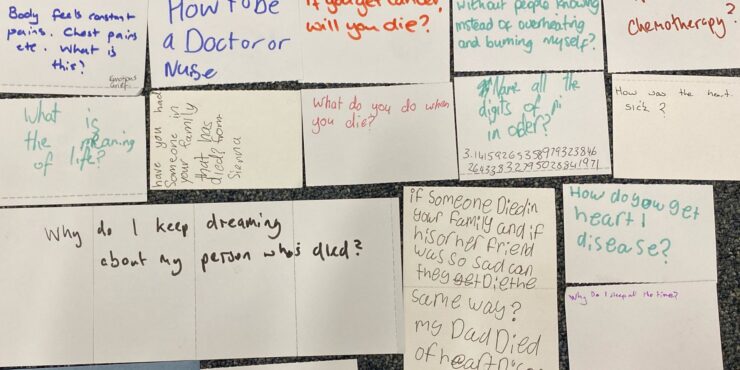 Body feels constant
pains. Chest pains
etc. What is
this?
Emotions
Grief.
How to be
a Doctor or
Nuse
if you get cancer,
will you die?
without people knowing
instead of overheating
and burning myself?
Chemotherapy?
What is
the meaning
of life?
have you had
someone in
your family
that has
died? from
Sienna
What do you do when
you die?
Name all the
digits of pi
in oder?
3.14159265358979323846
26433832795028841971
How was the heart
sick?
Why do I keep dreaming
about my person who's died?
if someone Died in
your family and if
his or her friend
was so sad can
they get Die the
same way?
my Dad Died
of heart
How do you get
heart
disease?
Why Do I sleep all the times?